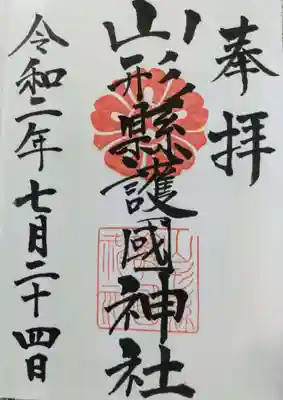 奉拝
山形縣護國神社
令和二年七月二十四日